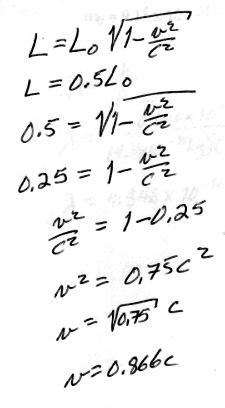 L = L₀ √(1 - v²/c²)
L = 0.5L₀
0.5 = √(1 - v²/c²)
0.25 = 1 - v²/c²
v²/c² = 1 - 0.25
v² = 0.75c²
v = √0.75 c
v = 0.866c